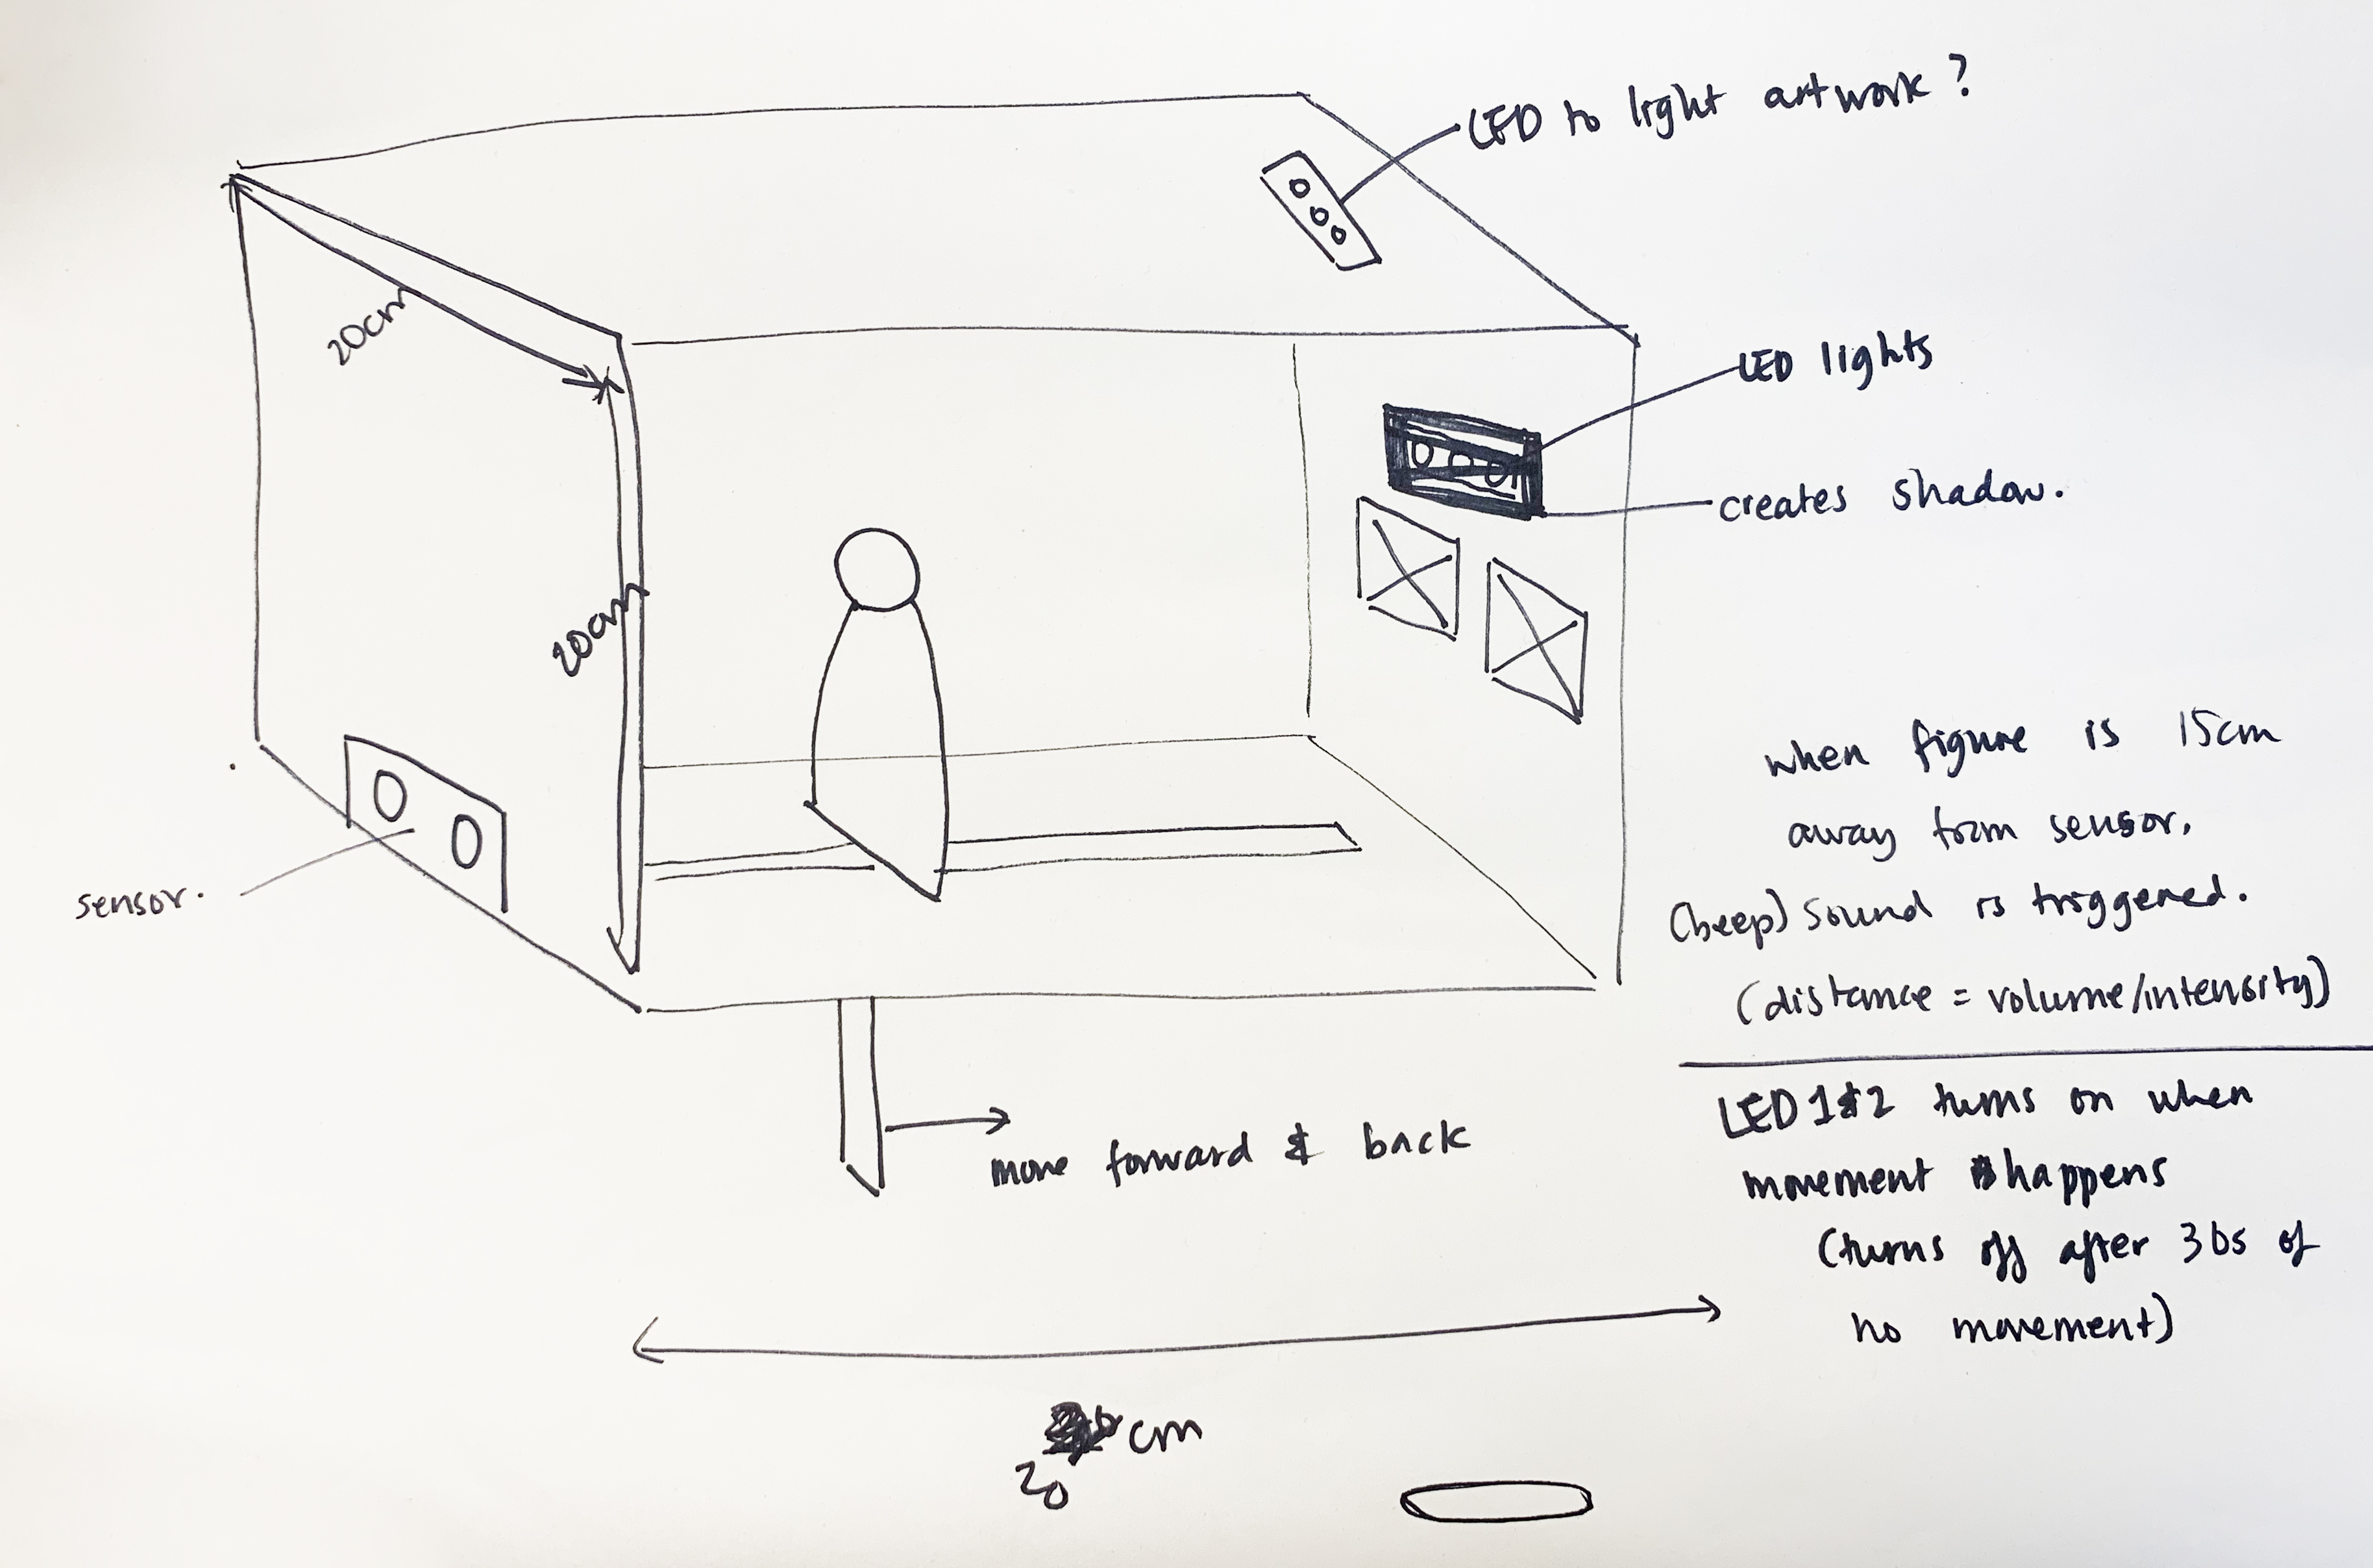 LED to light artwork?
20cm
LED lights
creates shadow.
20cm
when figure is 15cm
away from sensor,
(beep) sound is triggered.
(distance = volume/intensity)
sensor.
LED 1&2 turns on when
movement happens
(turns off after 30s of
no movement)
move forward & back
cm
20